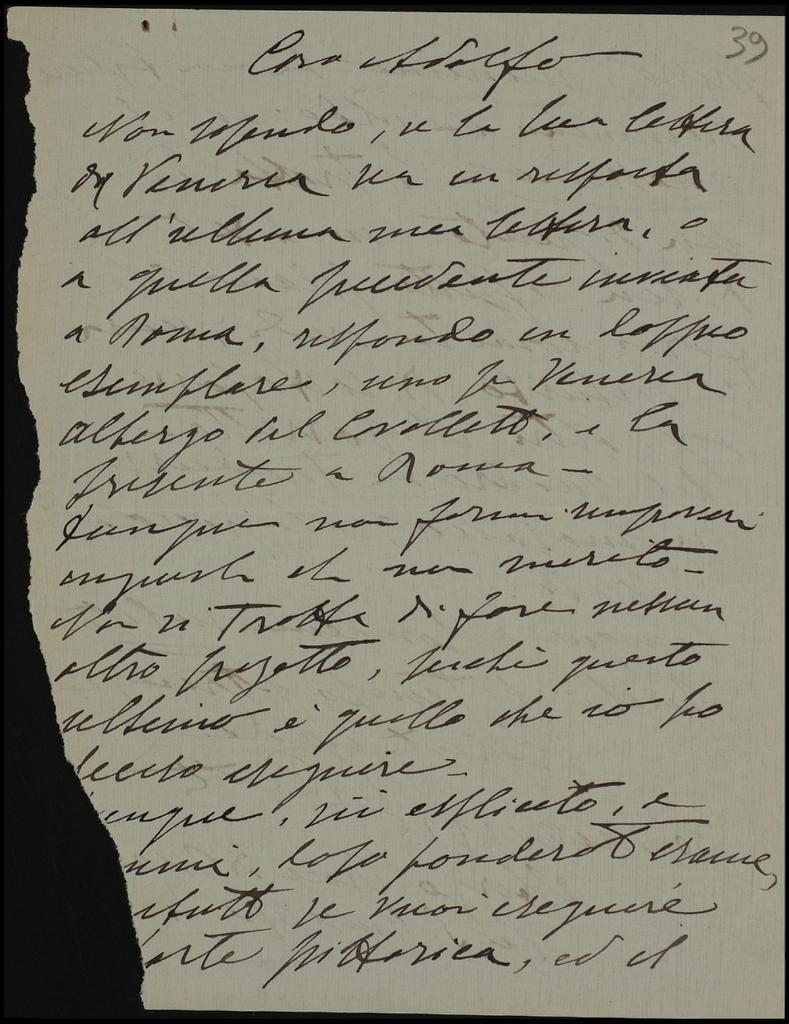 39
Caro Adolfo
Non sapendo, se la tua lettera
da Venezia sia in risposta
all'ultima mia lettera, o
a quella precedente inviata
a Roma, rispondo in doppio
esemplare, uno per Venezia
albergo del Cavalletto, e la
presente a Roma –
dunque non farmi rimproveri
ingiusti che non merito –
Non si tratta di fare nessun
altro progetto, perchè questo
ultimo è quello che io ho
deciso eseguire –
unque, sii esplicito, e
immi, dopo ponderato esame,
tutto se vuoi eseguire
arte pittorica, ed il